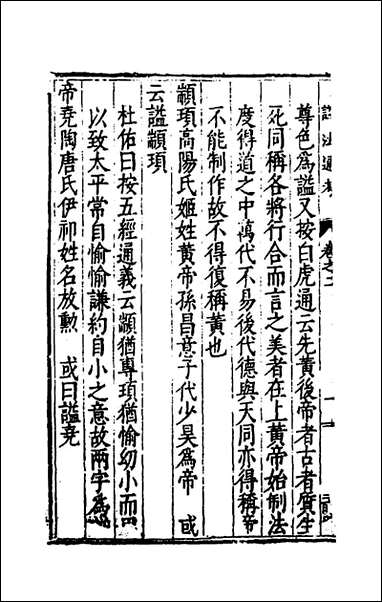 謚法通考 卷之二
尊色為謚又按白虎通云先黃後帝者古者質生
死同稱各將行合而言之美者在上黃帝始制法
度得道之中萬代不易後代德與天同亦得稱帝
不能制作故不得復稱黃也
顓頊高陽氏姬姓黃帝孫昌意子代少昊為帝 或
云謚顓頊
杜佑曰按五經通義云顓猶專頊猶愉幼小而
以致太平常自愉愉謙約自小之意故兩字為
帝堯陶唐氏伊祁姓名放勳 或曰謚堯